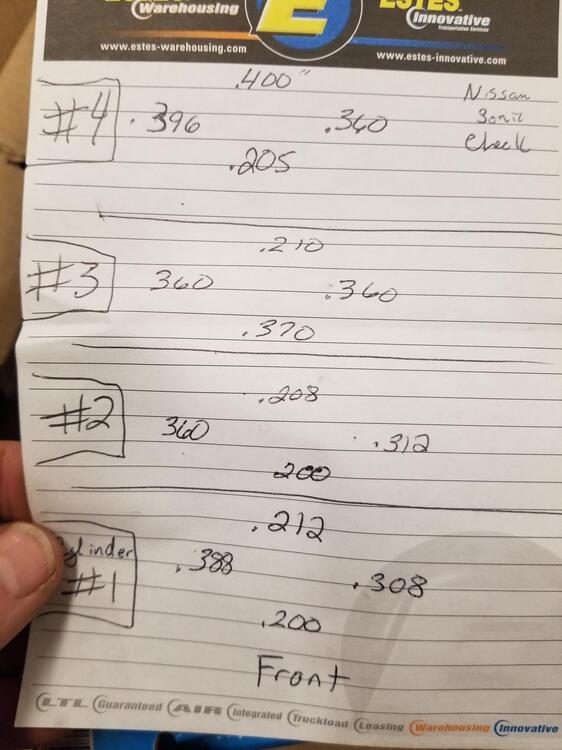 Warehousing
E
ESTES
Innovative
Transportation Services
www.estes-warehousing.com
www.estes-innovative.com
.400"
Nissan
Sonic
Check
#4
.396
.360
.205
.210
#3
360
.360
.370
.208
#2
360
.312
200
.212
Cylinder
#1
.388
.308
.200
Front
LTL Guaranteed AIR Integrated Truckload Leasing Warehousing Innovative